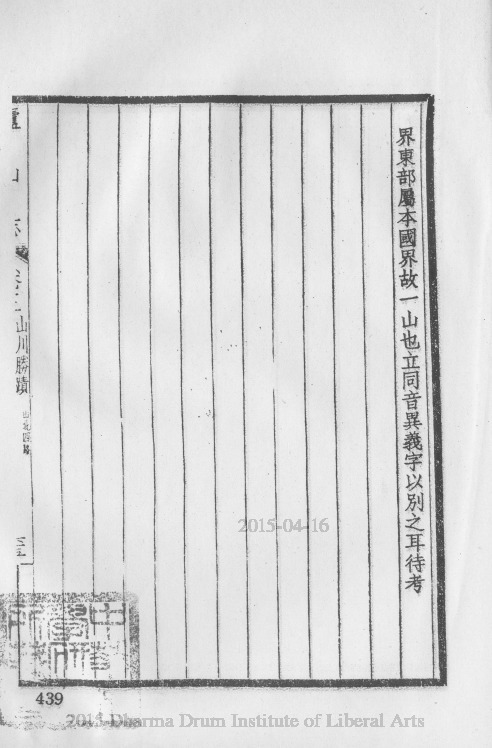 界東部屬本國界故一山也立同音異義字以別之耳待考
山川勝蹟
2015-04-16
439
2015 Dharma Drum Institute of Liberal Arts